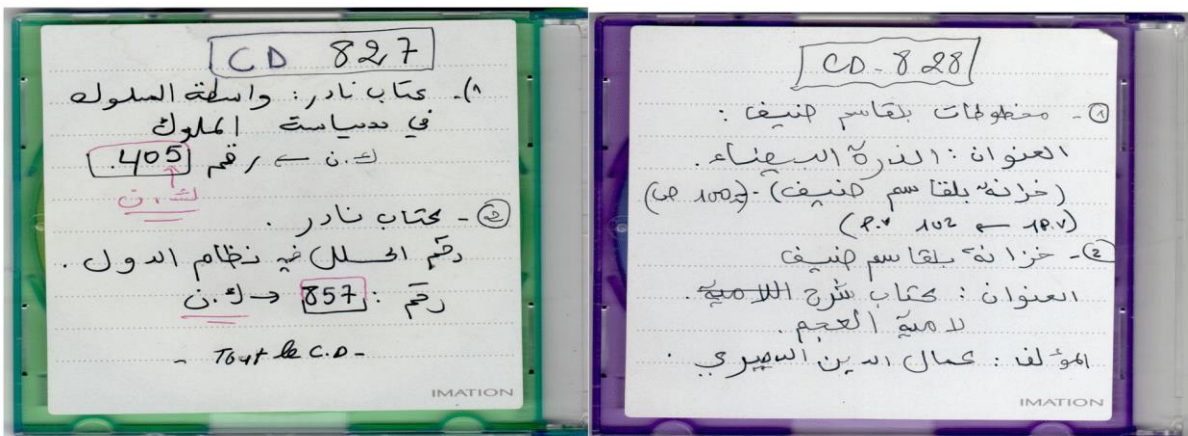 CD 827
1)- كتاب نادر: واسطة السلوك
في سياسة الملوك
ك.ن ← رقم 405.
ك.ن
2 - كتاب نادر.
رقم الحلل في نظام الدول.
رقم: 857 → ك.ن
- Tout le C.D -
IMATION
CD-828
1 - مخطوطات بلقاسم ضيف:
العنوان: الدرة البيضاء.
(خزانة بلقاسم ضيف)
(1P.v ← 102 P.v)
2 - خزانة بلقاسم ضيف
العنوان: كتاب شرح اللامية.
لامية العجم.
المؤلف: كمال الدين الدميري.
IMATION